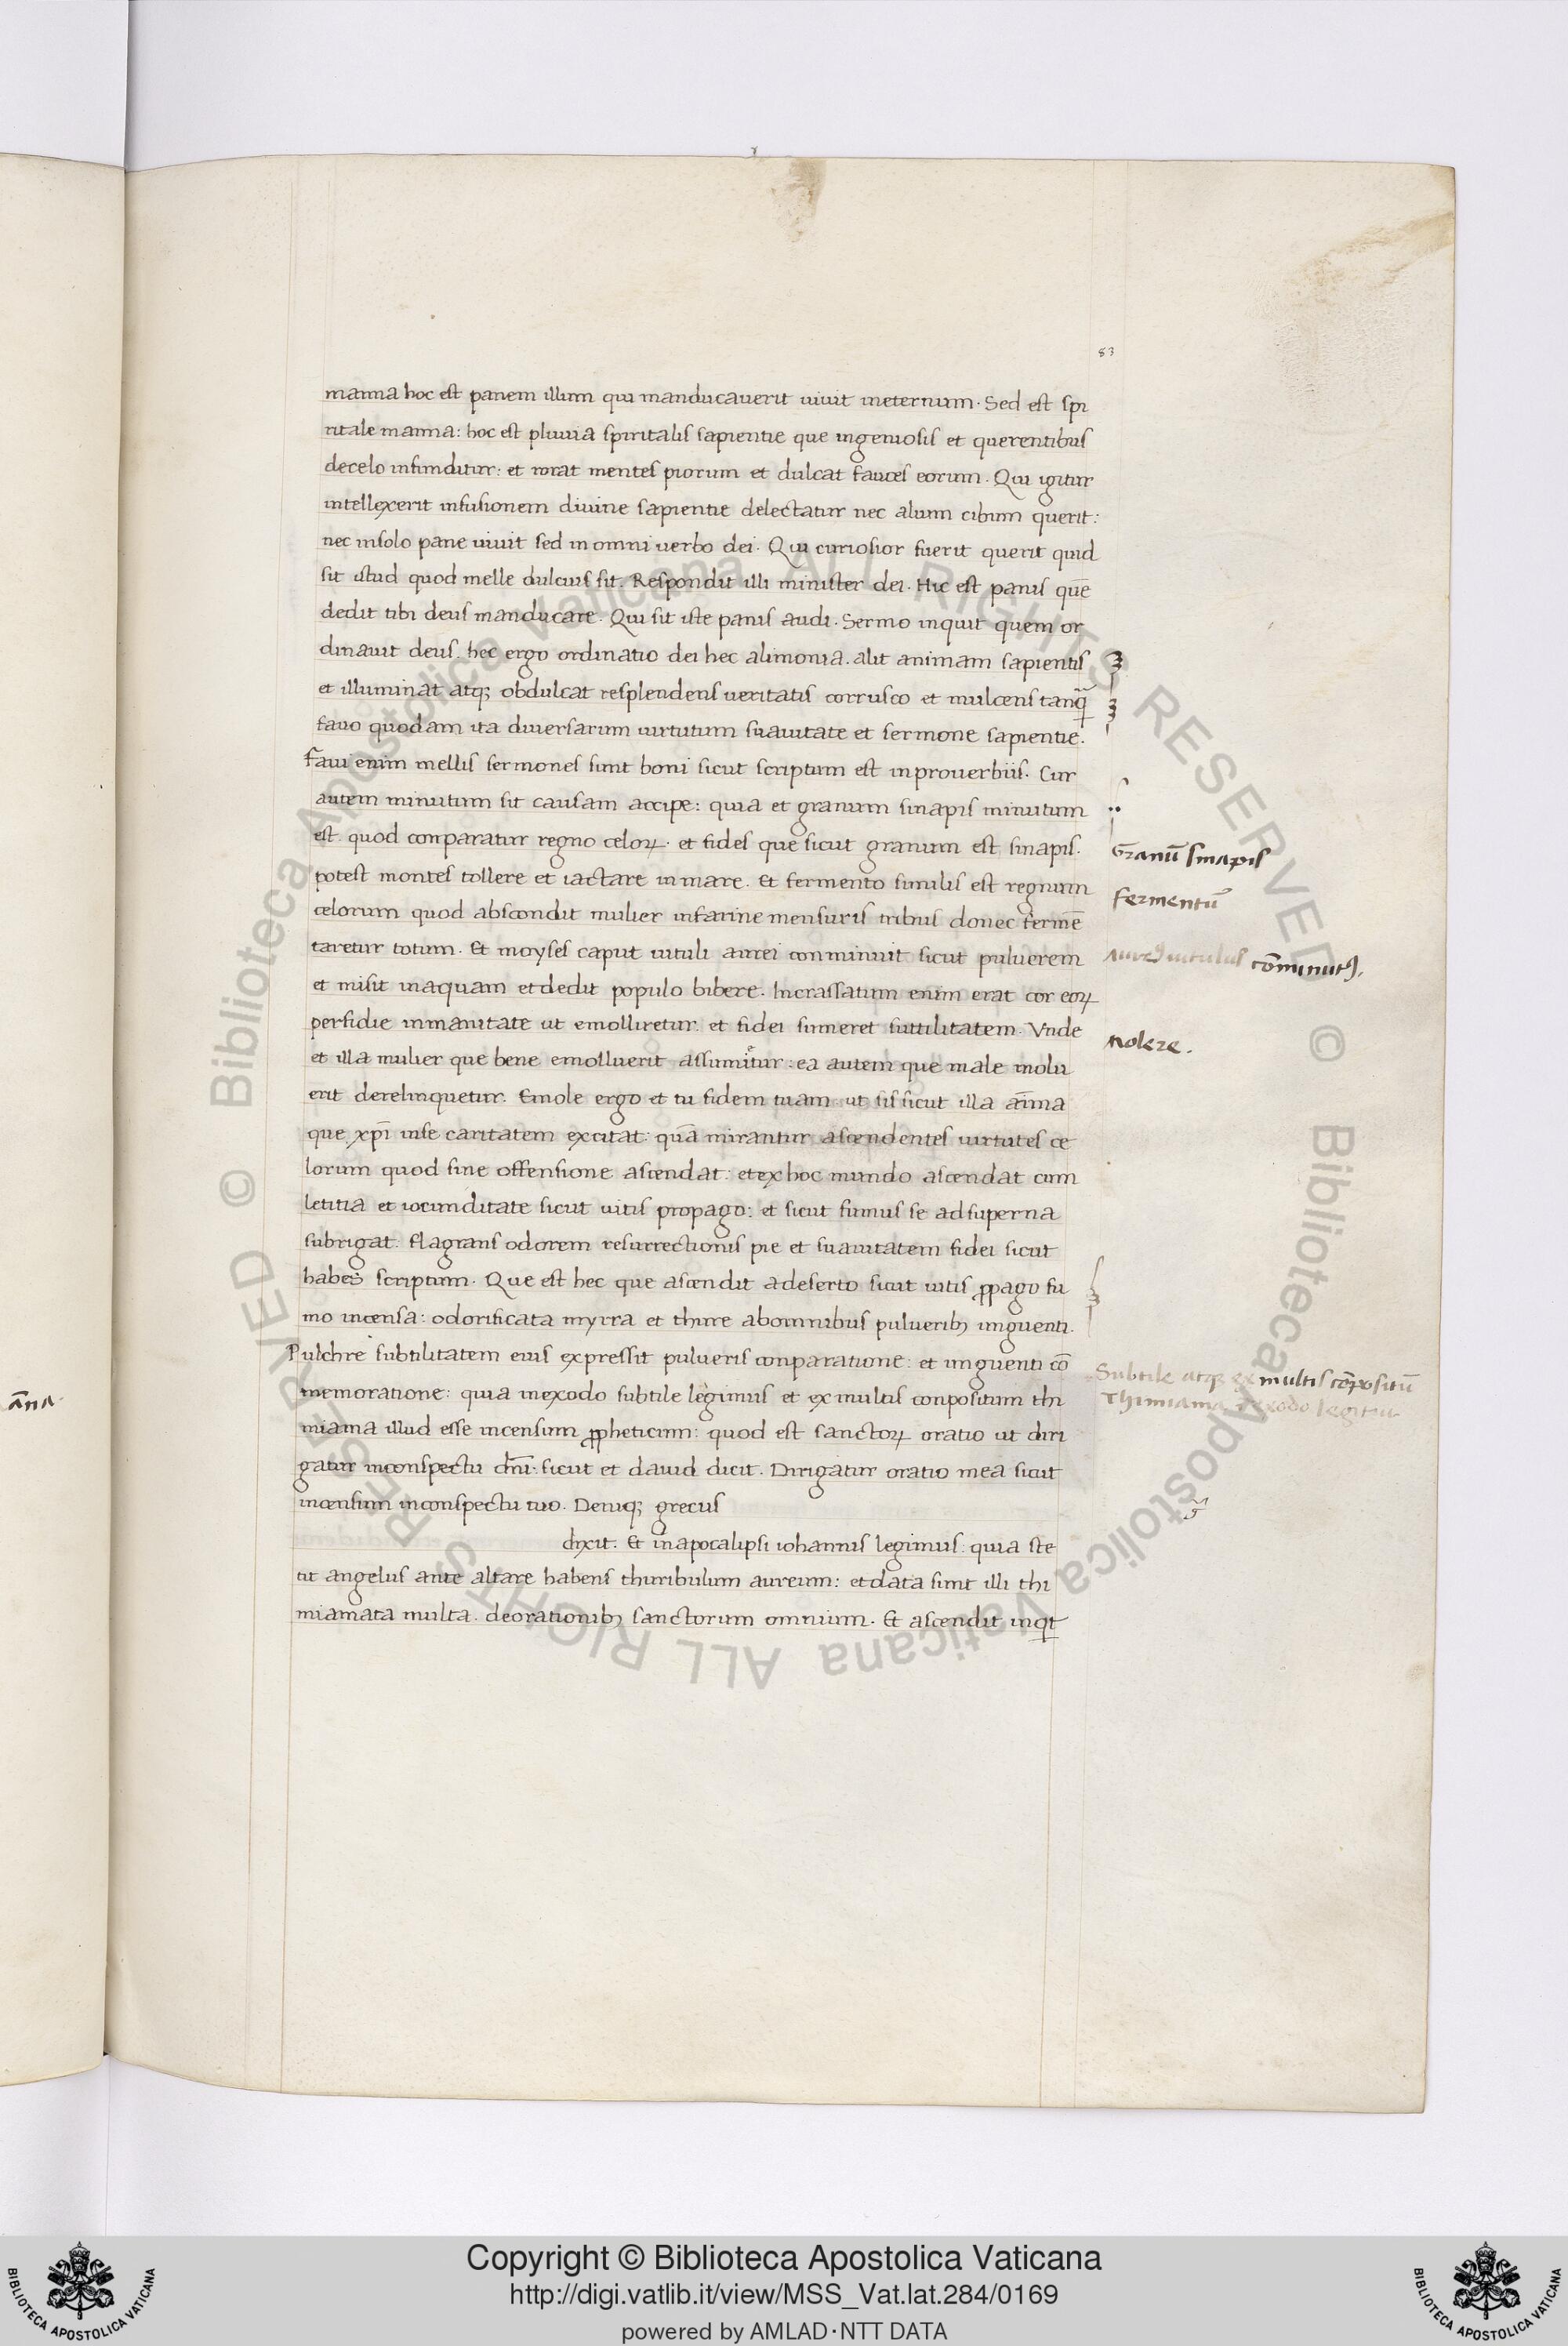 83
manna hoc est panem illum qui manducauerit uiuit ineternum. Sed est spi
ritale manna: hoc est pluuia spiritalis sapientie que ingeniosis et querentibus
decelo infunditur: et rorat mentes piorum et dulcat fauces eorum. Qui igitur
intellexerit infusionem diuine sapientie delectatur nec alium cibum querit:
nec insolo pane uiuit sed in omni uerbo dei. Qui curiosior fuerit querit quid
sit istud quod melle dulcius sit. Respondit illi minister dei. Hic est panis quē
dedit tibi deus manducare. Qui sit iste panis audi. Sermo inquit quem or
dinauit deus. hec ergo ordinatio dei hec alimonia. alit animam sapientis
et illuminat atq; obdulcat resplendens ueritatis corrusco et mulcens tanq̄
fauo quodam ita diuersarum uirtutum suauitate et sermone sapientie.
Faui enim mellis sermones sunt boni sicut scriptum est inprouerbiis. Cur
autem minutum sit causam accipe: quia et granum sinapis minutum
est. quod conparatur regno celoꝝ. et fides que sicut granum est sinapis.
potest montes tollere et iactare in mare. Et fermento similis est regnum
celorum quod abscondit mulier infarine mensuris tribus donec fermē
taretur totum. Et moyses caput uituli aurei conminuit sicut puluerem
et misit inaquam et dedit populo bibere. Incrassatum enim erat cor eoꝝ
perfidie inmanitate ut emolliretur. et fidei sumeret suttilitatem. Vnde
et illa mulier que bene emolluerit assumitur: ea autem que male molu
erit derelinquetur. Emole ergo et tu fidem tuam ut sis sicut illa aīma
que xp̄i inse caritatem excitat: quā mirantur ascendentes uirtutes ce
lorum quod sine offensione ascendat: et ex hoc mundo ascendat cum
letitia et iocunditate sicut uitis propago: et sicut fumus se ad superna
subrigat. Flagrans odorem resurrectionis pie et suauitatem fidei sicut
habes scriptum. Que est hec que ascendit adeserto sicut uitis ꝓpago fu
mo incensa: odorificata myrra et thure abomnibus puluerib; unguenti.
Pulchre subtilitatem eius expressit pulueris conparatione: et unguenti cō
memoratione: quia inexodo subtile legimus et ex multis conpositum thi
miama illud esse incensum ꝓpheticum: quod est sanctoꝝ oratio ut diri
gatur inconspectu dn̄i. sicut et dauid dicit. Dirigatur oratio mea sicut
incensum inconspectu tuo. Deniq; grecus
dixit. Et in apocalipsi iohannis legimus: quia ste
tit angelus ante altare habens thuribulum aureum: et data sunt illi thi
miamata multa. deorationib; sanctorum omnium. Et ascendit inqt
Granū sinapis
Fermentū
Aureꝰ uitulus cōminutꝰ.
Molere.
Subtile atq; ex multis cōpositū
Thimiama inexodo legitur
āna.
Copyright © Biblioteca Apostolica Vaticana
http://digi.vatlib.it/view/MSS_Vat.lat.284/0169
powered by AMLAD·NTT DATA
BIBLIOTECA APOSTOLICA VATICANA
BIBLIOTECA APOSTOLICA VATICANA
© Biblioteca Apostolica Vaticana ALL RIGHTS RESERVED © Biblioteca Apostolica Vaticana ALL RIGHTS RESERVED